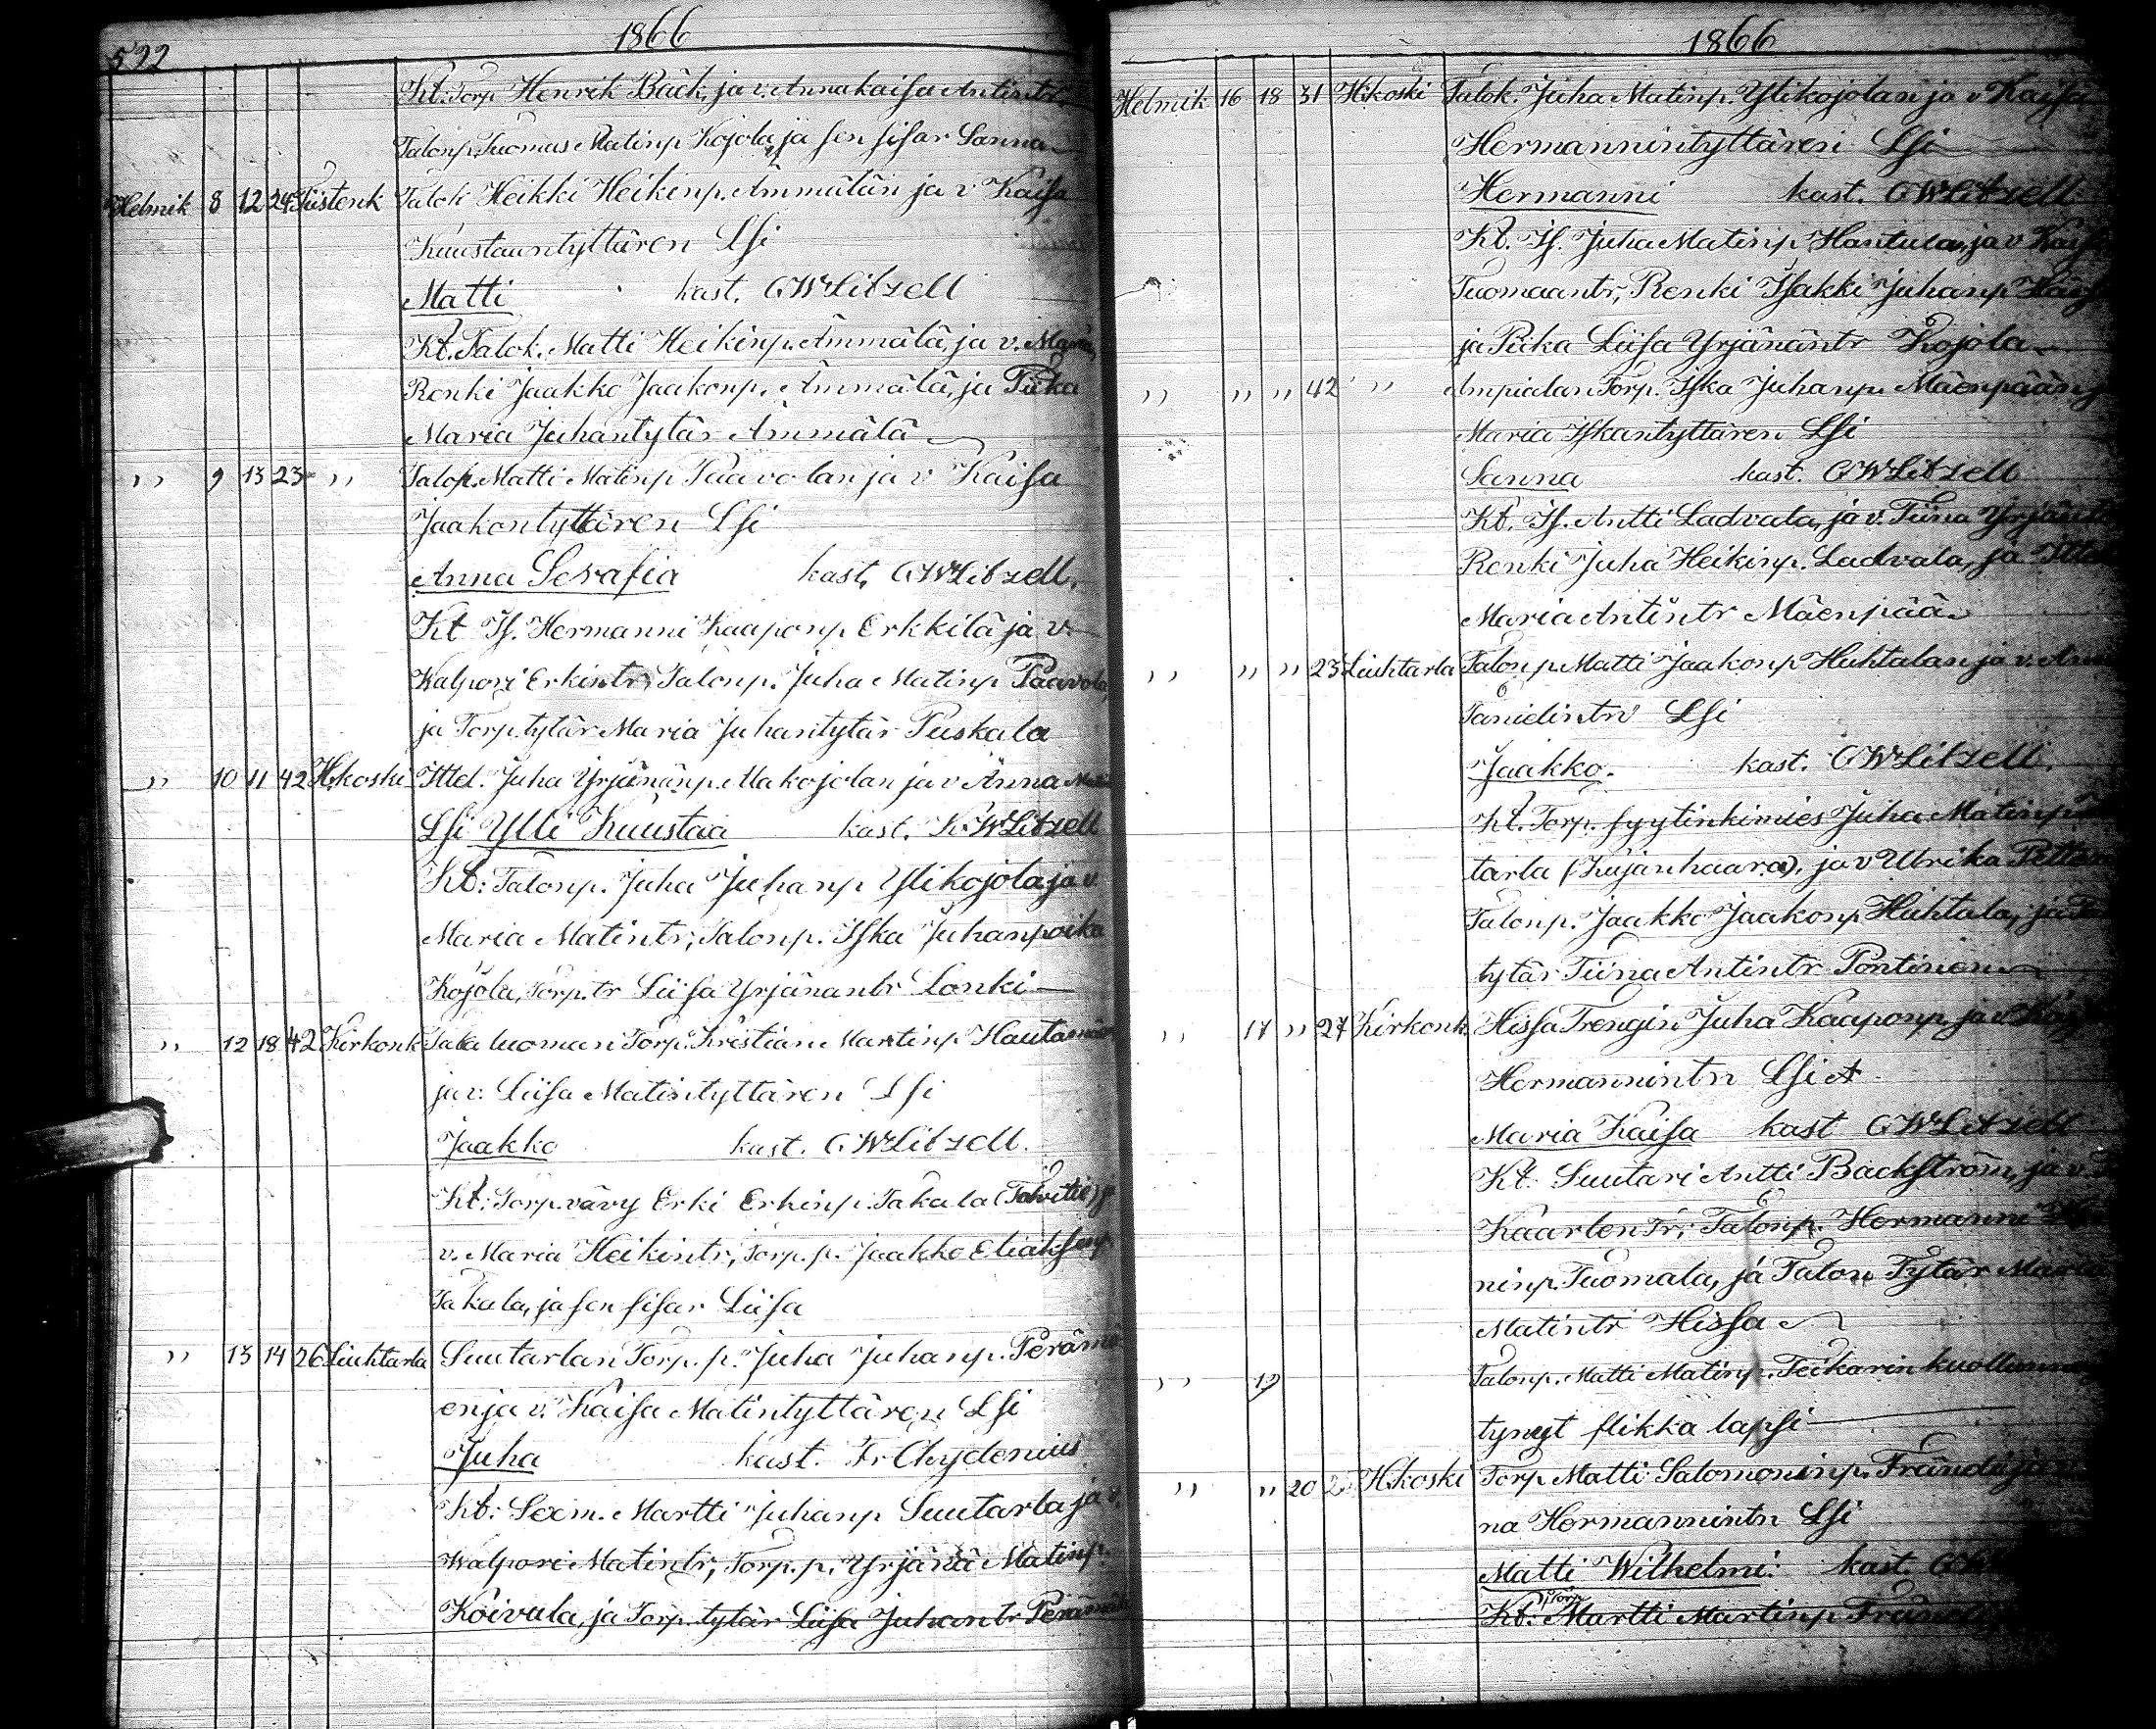 522
1866
Kt. Torp Henrik Bäck, ja v. Annakaisa Antintr.
Talonp. Tuomas Matinp Kojola, ja sen sisar Sanna
Helmik 8 12 24 Tiistenk Talok Heikki Heikinp. Ämmälän ja v Kaisa
Kuustaantyttären Lsi
Matti kast. GWLitzell
Kt. Talok. Matti Heikinp. Ämmälä, ja v. Maria,
Renki Jaakko Jaakonp. Ämmälä, ja Piika
Maria Juhantytär Ämmälä
,, 9 13 23 ,, Talop. Matti Matinp Paavolan ja v Kaisa
Jaakontyttären Lsi
Anna Serafia kast. GWLitzell.
Kt If. Hermanni Kaaponp Erkkilä ja v.
Walpori Erkintr, Talonp. Juha Matinp Paavola,
ja Torp.tytär Maria Juhantytär Puskala
,, 10 11 42 H.koski Ittel. Juha Yrjänänp. Makojolan ja v Anna
Lsi Ylli Kuustaa kast. GWLitzell
Kt: Talonp. Juha Juhanp Ylikojola ja v
Maria Matintr, Talonp. Iska Juhanpoika
Kojola, Torp.tr Liisa Yrjänäntr Lonki
,, 12 18 42 Kirkonk Talaluoman Torp. Kristian Martinp Hautamäen
ja v. Liisa Matintyttären Lsi
Jaakko kast. GWLitzell.
Kt: Torp.vävy Erki Erkinp. Takala (Talvitie) ja
v. Maria Heikintr, Torp.p. Jaakko Eliaksenp.
Takala, ja sen sisar Liisa
,, 13 14 26 Liuhtarla Suutarlan Torp.p. Juha Juhanp. Perämä
en ja v. Kaisa Matintyttären Lsi
Juha kast. Fr Chydenius
Kt: Sexm. Martti Juhanp Suutarla ja v.
Walpori Matintr, Torp.p. Yrjänä Matinp.
Koivula, ja Torp.tytär Liisa Juhantr Perämäki
1866
Helmik 16 18 31 H.koski Talok. Juha Matinp. Ylikojolan ja v Kaisa
Hermannintyttären Lsi
Hermanni kast. GWLitzell
Kt. If. Juha Matinp Hantula, ja v Kaisa
Tuomaantr, Renki Isakki Juhanp
ja Piika Liisa Yrjänäntr Kojola
,, ,, ,, 42 ,, Ampialan Torp. Iska Juhanp. Mäenpään j
Maria Iskantyttären Lsi
Sanna kast. GWLitzell
Kt. If. Antti Ladvala, ja v. Tiina Yrjänäntr
Renki Juha Heikinp. Ladvala, ja Ittel
Maria Antintr Mäenpää
,, ,, ,, 23 Liuhtarla Talonp Matti Jaakonp Huhtalan ja v. Ann
Tanielintrn Lsi
Jaakko. kast. GWLitzell.
Kt. Torp. syytinkimies Juha Matinp
tarla (Kujanhaara), ja v Ulrika
Talonp. Jaakko Jaakonp. Huhtala, ja
tytär Tiina Antintr Pontinen
,, 17 ,, 27 Kirkonk. Hissa Trengin Juha Kaaponp ja v
Hermannintrn Lsi
Maria Kaisa kast GWLitzell
Kt. Suutari Antti Backström, ja v.
Kaarlen tr, Talonp. Hermanni
ninp. Tuomala, ja Talon Tytär Maria
Matintr Hissa
,, 19 Talonp. Matti Matinp. Teikarin kuolluna
tynyt flikka lapsi
,, ,, 20 2 H.koski Torp Matti Salomoninp. Frändi ja
na Hermannintrn Lsi
Matti Wilhelmi. kast.
Kt: Torp Martti Martinp Frändi